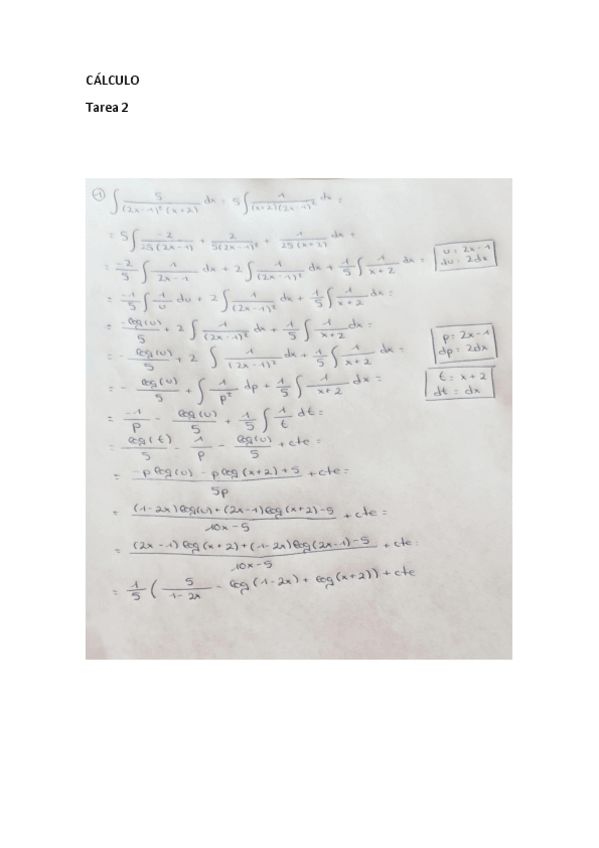 CÁLCULO
Tarea 2
① ∫ 5/((2x-1)²(x+2)) dx = 5∫ 1/((x+2)(2x-1)²) dx =
= 5∫ -2/(25(2x-1)) + 2/(5(2x-1)²) + 1/(25(x+2)) dx =
= -2/5 ∫ 1/(2x-1) dx + 2∫ 1/(2x-1)² dx + 1/5 ∫ 1/(x+2) dx =
u = 2x-1
du = 2dx
= -1/5 ∫ 1/u du + 2∫ 1/(2x-1)² dx + 1/5 ∫ 1/(x+2) dx =
= log(u)/5 + 2∫ 1/(2x-1)² dx + 1/5 ∫ 1/(x+2) dx =
= - log(u)/5 + 2 ∫ 1/(2x-1)² dx + 1/5 ∫ 1/(x+2) dx =
p = 2x-1
dp = 2dx
= - log(u)/5 + ∫ 1/p² dp + 1/5 ∫ 1/(x+2) dx =
t = x+2
dt = dx
= -1/p - log(u)/5 + 1/5 ∫ 1/t dt =
= log(t)/5 - 1/p - log(u)/5 + cte =
= (-p log(u) - p log(x+2) + 5)/5p + cte =
= ((1-2x) log(u) + (2x-1) log(x+2) - 5)/(10x-5) + cte =
= ((2x-1) log(x+2) + (1-2x) log(2x-1) - 5)/(10x-5) + cte =
= 1/5 ( 5/(1-2x) - log(1-2x) + log(x+2)) + cte